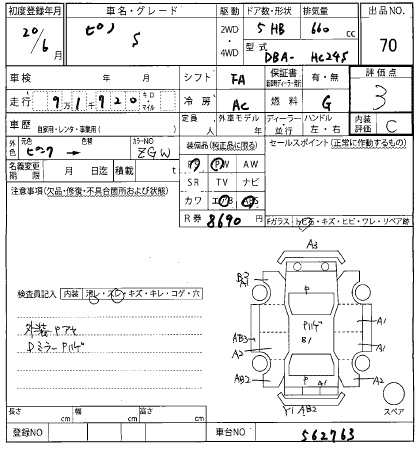 初度登録年月 車名・グレード 駆動 ドア数・形状 排気量 出品NO
20/6月 ピノ S 2WD・4WD 5 HB 660 cc 70
型式 DBA- HC24S
車検 年 月 シフト FA 保証書 有・無 評価点 3
走行 9万1千720 キロ・マイル 冷房 AC 燃料 G
車歴 自家用・レンタ・事業用( ) 定員 人 外車モデル 年 ディーラー・並行 ハンドル 左・右 内装評価 C
外色 元色 ピンク → 色替 カラーNO ZGW 装備品(純正品に限る) セールスポイント(正常に作動するもの)
名義変更期限 月 日迄 積載 t PS PW AW
注意事項(欠品・修復・不具合箇所および状態) SR TV ナビ
カワ エアB ABS
R券 8690 円 Fガラス トビ石・キズ・ヒビ・ワレ・リペア跡
検査員記入 内装 汚レ・スレ・キズ・キレ・コゲ・穴
外装ヤケ
DミラーPハゲ
A3
P
Pハゲ
B1
A1
AB3
A2
A1
AB2
P
A1
A2
Y1 AB2
スペア
長さ cm 幅 cm 高さ cm
登録NO 車台NO 562763